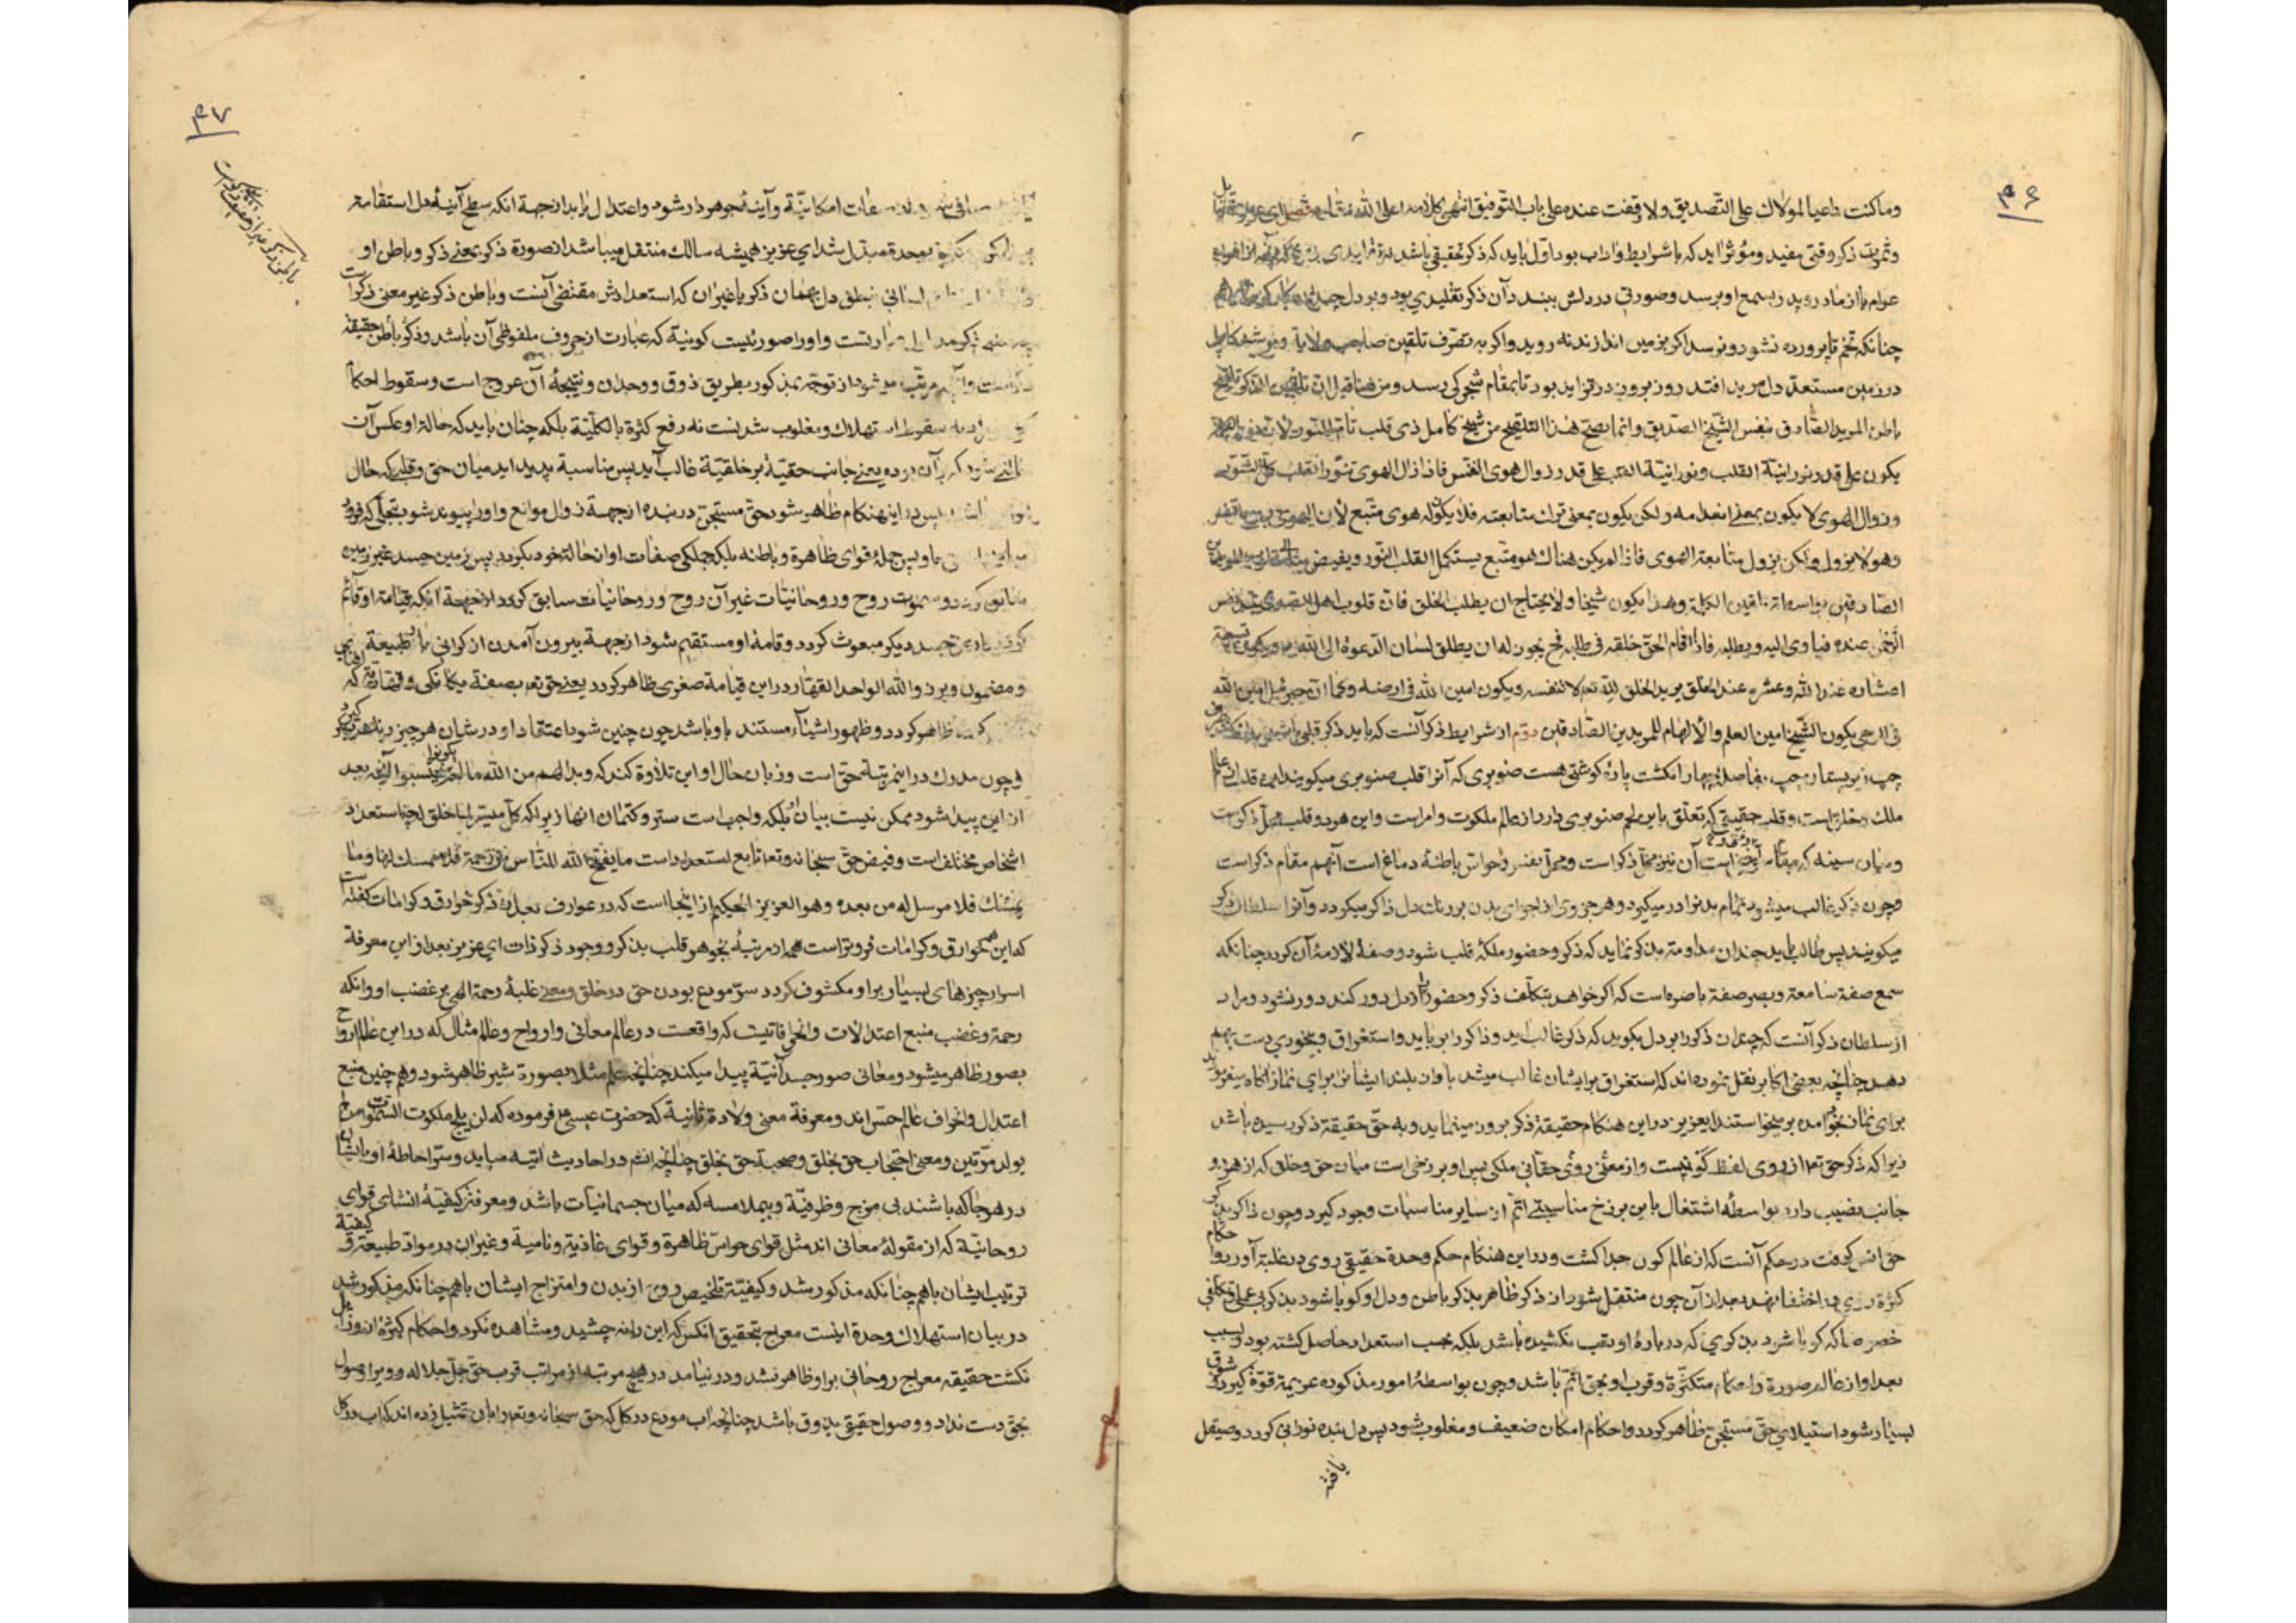 ٣٦
وما کنت داعیا لمولاک علی التصدیق ولا وقفت عنده علی باب التوفیق انتهی کلامه اعلی الله مقامه فصل ای عزیز
وثمرت ذکر وقتی مفید ومؤثر اید که با شرایط واداب بود اول باید که ذکر تحقیقی باشد نه تقلیدی
عوام یا از مادر و پدر بسمع او برسد وصورتی در دلش ببندد آن ذکر تقلیدی بود و بر دل چندان کارگر
چنانکه تخم تا پرورده نشود و نرسد اکر بزمین اندازند نه روید واکر به تصرف تلقین صاحب ولایة ومرشد کامل
در زمین مستعد دل مرید افتد روز بروز در تزاید بود تا بمقام شجرکی رسد ومن هنا قیل ان تلقین الذکر
باطن المرید الصادق بنفس الشیخ الصدیق وانما یصح هذا التلقیح من شیخ کامل ذی قلب تام النور لان
یکون علی قدر نورانیة القلب ونورانیة القلب علی قدر زوال هوی النفس فاذا زال الهوی تنور القلب کل التنور
وزوال الهوی لا یکون بمعنی انعدامه ولکن یکون بمعنی ترک متابعته فلا یکون له هوی متبع لان الهوی
وهو لا یزول ولکن یزول متابعة الهوی فاذا لم یکن هناک هو متبع یستکمل القلب النور ویفیض
الصادقین بواسطة تلقین الکلمة وهذا یکون شیخا ولا یحتاج ان یطلب الخلق فان قلوب اهل الصدق
عنده فیاوی الیه ویطلبه فاذا اقام الحق خلقه فی طلبه فح یجوز له ان یطلق لسان الدعوة الی الله
عند الله وعشره عند الخلق یرید الخلق لله تعه لا لنفسه ویکون امین الله فی ارضه وکما ان جبرئیل امین الله
فی الوحی یکون الشیخ امین العلم والالهام للمریدین الصادقین دوم از شرایط ذکر آنست که باید ذکر قلبی باشد
چپ زیر پستان چپ بفاصلهٔ چهار انکشت پارهٔ کوشتی هست صنوبری که آنرا قلب صنوبری میکویند از عالم
ملک وقلب حقیقی که تعلق باین لحم صنوبری دارد از عالم ملکوت وامر است واین هر دو قلب محل ذکر است
ومیان سینه که مقام است آن نیز محل ذکر است ومحل نفس وحواس باطنهٔ دماغ است آنهم مقام ذکر است
وچون ذکر غالب میشود تمام بدن را در میکیرد وهر جزوی از اجزای بدن بر رنک دل ذاکر میکردد وآنرا سلطان ذکر
میکویند پس طالب باید چندان مداومت بذکر نماید که ذکر وحضور ملکهٔ قلب شود وصفهٔ لازمهٔ آن کردد چنانکه
سمع صفة سامعة وبصر صفة باصره است که اکر خواهد بتکلف ذکر وحضور را از دل دور کند دور نشود ومراد
از سلطان ذکر آنست که چندان ذکر را بر دل بکوید که ذکر غالب اید وذاکر را برباید واستغراق وبیخودی دست بهم
دهد چنانچه بعضی اکابر نقل نموده اند که استغراق بر ایشان غالب میشد باواز بلند ایشانرا برای نماز آکاه
برای نماز بخود آمده برمیخواستند ایعزیز در این هنکام حقیقة ذکر برون مینماید وبه حق حقیقة ذکر رسیده باشد
زیرا که ذکر حق تعه از روی لفظ کونیست واز معنی روئی حقانی ملکی پس او برزخی است میان حق وخلق که از هر دو
جانب نصیب دارد بواسطه اشتغال باین برزخ مناسبتی اتم از سایر مناسبات وجود کیرد وچون ذاکر بذکر
حق انس کرفت در حکم آنست که از عالم کون جدا کشت ودر این هنکام حکم وحدة حقیقی روی در غلبه آورد واحکام
کثرة روی در اختفا نهد بعد از آن چون منتقل شود از ذکر ظاهر بذکر باطن ودل او کویا شود بذکر بی عمل وتکلفی
خصوصا که کویا شود بذکری که در بارهٔ او تعب نکشیده باشد بلکه بحسب استعداد حاصل کشته بود
بعد او از عالم صورة واحکام متکثرة وقرب او بحق اتم باشد وچون بواسطهٔ امور مذکوره عزیمة قوة کیرد وشوق
بسیار شود استیلای حق مستجن ظاهر کردد واحکام امکان ضعیف ومغلوب شود پس دل بنده نورانی کردد وصیقل
یافته
٣٧
امکانیّة وآینه مجوهر دار شود واعتدال یابد از جهة آنکه سطح آینهٔ دل استقامة
بوحدة مبدل شد ای عزیز همیشه سالک منتقل میباشد از صورة ذکر بمعنی ذکر وباطن او
دل بهمان ذکر یا غیر آن که استعدادش مقتضی آنست وباطن ذکر غیر معنی ذکر است
واو را صورتیست کونیة که عبارت از حروف ملفوظی آن باشد وذکر باطن حقیقة
مرتب میشود از توجه بمذکور بطریق ذوق ووجدان ونتیجهٔ آن عروج است وسقوط احکام
سقوط استهلاک ومغلوب شدنست نه رفع کثرة بالکلیّة بلکه چنان باید که حالة او عکس آن
یعنی جانب حقیّة بر خلقیّة غالب آید پس مناسبة پدید اید میان حق وقلب که حال
در این هنکام ظاهر شود حق مستجن در بنده از جهة زوال موانع واو را پیوند شود بتجلی
پس جملهٔ قوای ظاهرة وباطنه بلکه جملکی صفات او از حالة خود بکردد پس زمین جسد غیر زمین
روح وروحانیّات غیر آن روح وروحانیات سابق کردد از جهة آنکه قیامة او قائم
جسد دیکر مبعوث کردد وقامة او مستقیم شود از جهة بیرون آمدن از کرانی بار طبیعة
ومضمون وبرزوا لله الواحد القهّار در این قیامة صغری ظاهر کردد یعنی حق تعه بصفة یکانکی وقهاریّة که
ظاهر کردد وظهور اشیاء مستند باو باشد چون چنین شود اعتقاد او در شان هر چیز
وچون مدرک در این مرتبة حق است وزبان حال او این تلاوة کند که وبدا لهم من الله ما لم یکونوا یحتسبوا آنچه بعد
از این پیدا شود ممکن نیست بیان او بلکه واجب است ستر وکتمان آنها زیرا که کلّ میسّر لما خلق له چه استعداد
اشخاص مختلف است وفیض حق سبحانه وتعه تابع استعداد است ما یفتح الله للناس من رحمة فلا ممسک لها وما
یمسک فلا مرسل له من بعده وهو العزیز الحکیم از اینجا است که در عوارف بعد از ذکر خوارق وکرامات کفته است
که این همه خوارق وکرامات فروتر است از مرتبهٔ تجوهر قلب بذکر ووجود ذکر ذات ای عزیز بعد از این معرفة
اسرار چیزهای بسیار بر او مکشوف کردد سرّ مودع بودن حق در خلق ومعنی غلبهٔ رحمة الهی بر غضب او وآنکه
رحمة وغضب منبع اعتدالات وانحرافاتیست که واقعست در عالم معانی وارواح وعالم مثال که در این عالم ارواح
بصور ظاهر میشود ومعانی صور جسدآنیّة پیدا میکند چنانچه علم مثلا بصورة شیر ظاهر شود وهم چنین منبع
اعتدال وانحراف عالم حسّ اند ومعرفة معنی ولادة ثانیة که حضرت عیسی ع فرموده که لن یلج ملکوت السّموات من لم
یولد مرّتین ومعنی احتجاب حق بخلق وصحبة حق بخلق چنانچه انتم در احادیث آتیه میاید وسرّ احاطهٔ او باشیا
در هر جا که باشند بی مزج وظرفیّة وبیملامسه که میان جسمانیات باشد ومعرفة کیفیّة انشای قوای
روحانیّة که از مقولهٔ معانی اند مثل قوای حواسّ ظاهرة وقوای غاذیة ونامیة وغیر ان در موادّ طبیعة وکیفیّة
ترتیب ایشان باهم چنانکه مذکور شد وکیفیّة تلخیص روح از بدن وامتزاج ایشان باهم چنانکه مذکور شد
در بیان استهلاک وحدة اینست معراج بتحقیق آنکس که این را نه چشید ومشاهده نکرد واحکام کثرة از وزایل
نکشت حقیقه معراج روحانی بر او ظاهر نشد ودر نیامد در هیچ مرتبه از مراتب قرب حق جلّ جلاله وویرا وصول
بحق دست نداد ووصول حقیقی بذوق باشد چنانچه اب مودع در کل که حق سبحانه وتعه را بان تمثیل زده اند که اب در کل